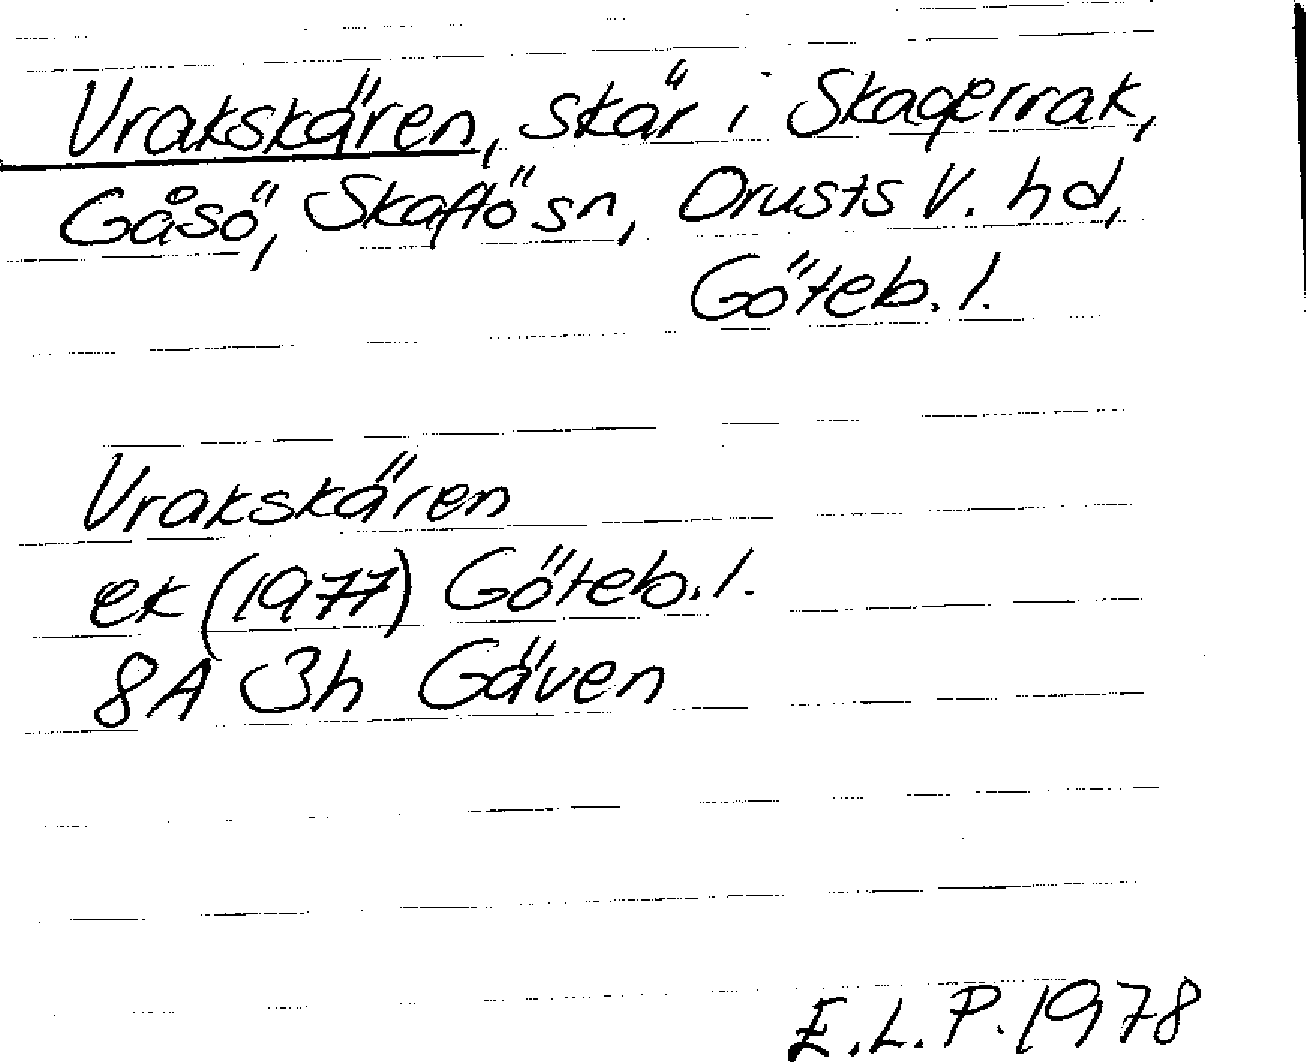 Vrakskären, skär i Skagerrak,
Gåsö, Skaftö sn, Orusts V. hd,
Göteb. l.
Vrakskären
ek (1977) Göteb. l.
8A 3h Gäven
E.L.P. 1978